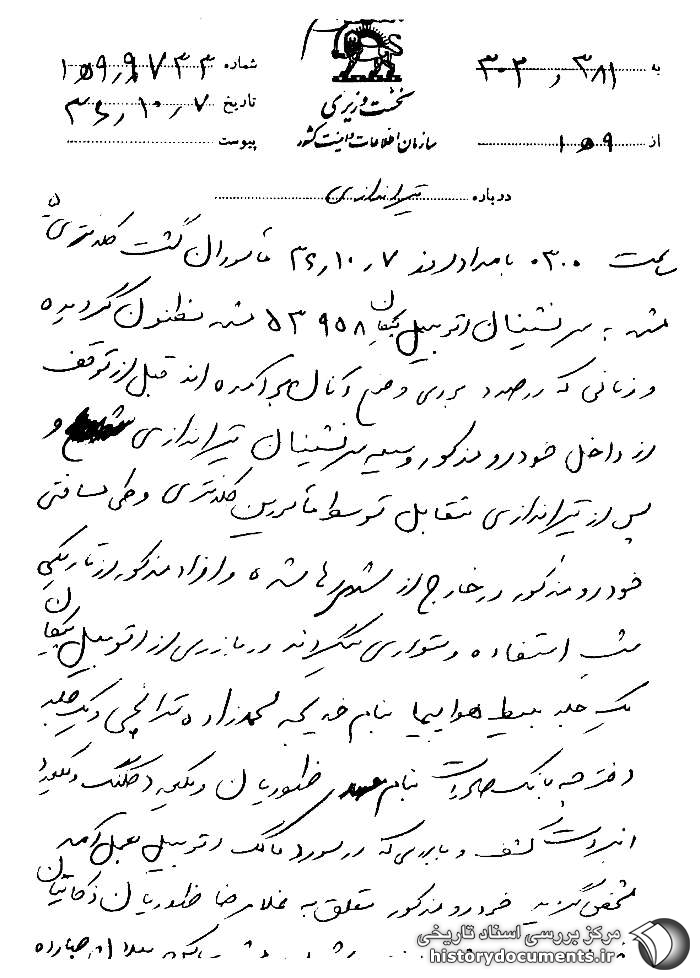 به ۳۸۱ و ۳۰۲
شماره ۱۵۹٫۹۷۳۳
نخست وزیری
تاریخ ۳۶٫۱۰٫۷
از ۱۵۹
سازمان اطلاعات و امنیت کشور
پیوست
درباره تیراندازی
ساعت ۰۳۰۰ بامداد روز ۳۶٫۱۰٫۷ مأموران گشت کلانتری ۵
به سرنشینان اتومبیل پیکان ۵۳۹۵۸ مظنون گردیده
و زمانی که درصدد بررسی وضع آنان برآمده اند قبل از توقف
از داخل خودرو مذکور وسیله سرنشینان تیراندازی و
پس از تیراندازی متقابل توسط مأمورین کلانتری و طی مسافتی
خودرو مذکور در خارج از شهر رها شده و افراد مذکور از تاریکی
شب استفاده و متواری میگردند در بازرسی از اتومبیل پیکان
یک جلد بلیط هواپیما بنام خدیجه محمدزاده و یک جلد
دفترچه بانک صادرات بنام و یک عدد کلنگ و یکعدد
انبردست کشف و با بررسی که در مورد مالک اتومبیل بعمل آمد
مشخص گردید خودرو مذکور متعلق به غلامرضا
مرکز بررسی اسناد تاریخی
historydocuments.ir